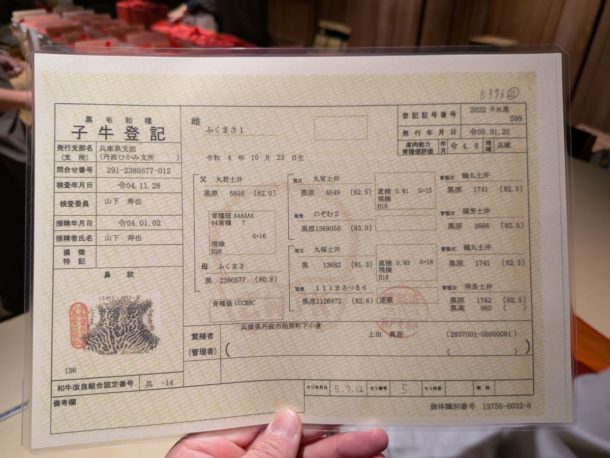 黒毛和種
子牛登記
雌
ふくまさ1
令和 4年 10月 23日生
登記記号番号 2022 子米黒
599
発行年月日 令05.01.20
産肉能力
育種価評価 年月 令 4.8 地域 兵庫
発行支部名
(支所) 兵庫県支部
(丹波ひかみ支所)
問合せ番号 291-2380577-012
検査年月日 令04.11.28
検査委員 山下 寿也
授精年月日 令04.01.02
授精者氏名 山下 寿也
損徴
特記
鼻紋
136
和牛改良組合認定番号 兵 -14
備考欄
父 丸若土井
黒原 5856 (82.0)
育種価 AAAAAA
04育種 7
現検 G=16
H26
母 ふくまさ
黒 2380577 (80.8)
育種価 CCCBBC
祖父 丸宮土井
黒原 4549 (82.5)
祖母 のぞむ2
黒原1369050 (83.0)
祖父 丸福土井
黒 13682 (81.3)
祖母 111まさつる6
黒原1126972 (82.6)
直検 0.91 G=15
現検
H18
直検 0.93 G=16
現検
H19
曽祖父 鶴丸土井
黒原 1741 (82.3)
曽祖父 福芳土井
黒原 3666 (82.5)
曽祖父 鶴丸土井
黒原 1741 (82.3)
曽祖父 照長土井
黒原 1742 (82.5)
黒高 960
繁殖者
(管理者)
兵庫県丹波市柏原町下小倉
上田 (2807001-00000091)
セリ年月日 5.7.12 セリ番号 5 セリ体重
個体識別番号 13755-6032-8